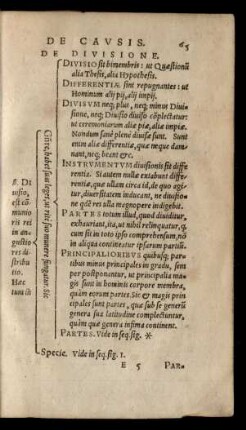 DE CAVSIS. 65
DE DIVISIONE.
DIVISIO sit bimembris: ut Quæstionũ
alia Thesis, alia Hypothesis.
DIFFERENTIÆ sint repugnantes: ut
Hominum alij pij, alij impij.
DIVISVM neq; plus, neq; minus Diui-
sione, neq; Diuisio diuiso cõplectatur:
ut ceremoniarum aliæ piæ, aliæ impiæ.
Nondum sanè plenè diuisæ sunt. Sunt
enim aliæ differentiæ, quæ neque dam-
nant, neq; beant &c.
INSTRVMENTVM diuisionis sit diffe-
rentia. Statuem nulla exstabunt differen-
tiæ, quæ ullam circa id, de quo agi-
tur, diuersitatem inducant, ne diuisio-
ne qdẽ res ulla magnopere indigebit.
PARTES totum illud, quod diuiditur,
exhauriant, ita, ut nihil relinquatur, q
cum sit in toto ipso comprehensum, nõ
in aliqua contineatur ipsarum partiũ.
PRINCIPALIORIBVS quibusq; par-
tibus minus principales in gradu, sem
per postponantur, ut principalia ma-
gis sunt in hominis corpore membra,
quàm eorum partes. Sic & magis prin
cipales sunt partes, quæ sub se generũ
genera sua latitudine complectuntur,
quàm quæ genera infima continent.
PARTES. Vide in seq. sig. *
Specie. Vide in seq. sig. 1.
E 5 PAR-
8. DI
uisio,
est cõ
munio
ris rei
in an-
gustio
res di-
stribu
tio.
Hæc